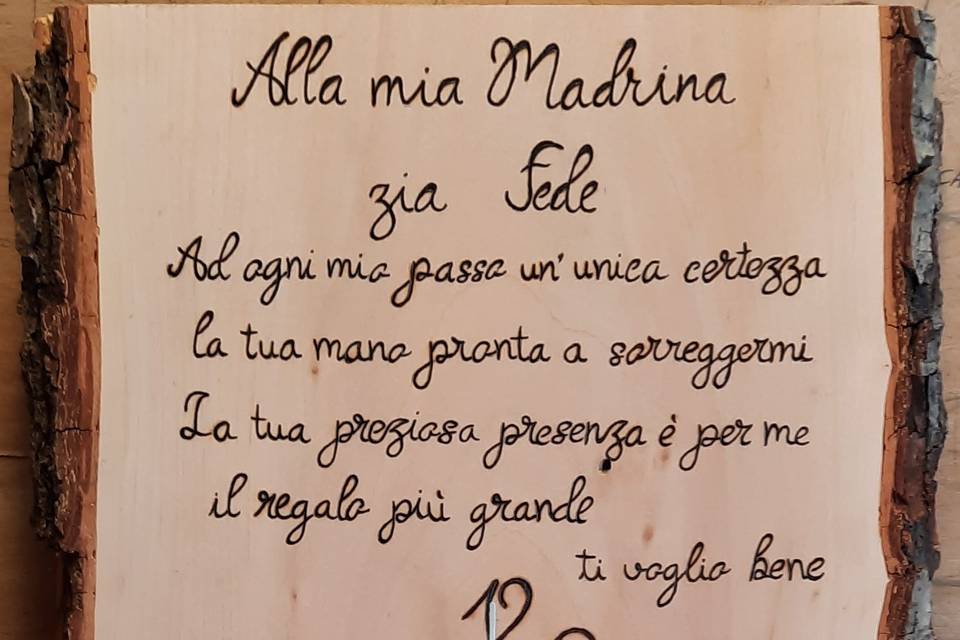 Alla mia Madrina
zia Fede
Ad ogni mio passo un'unica certezza
la tua mano pronta a sorreggermi
La tua preziosa presenza è per me
il regalo più grande
ti voglio bene